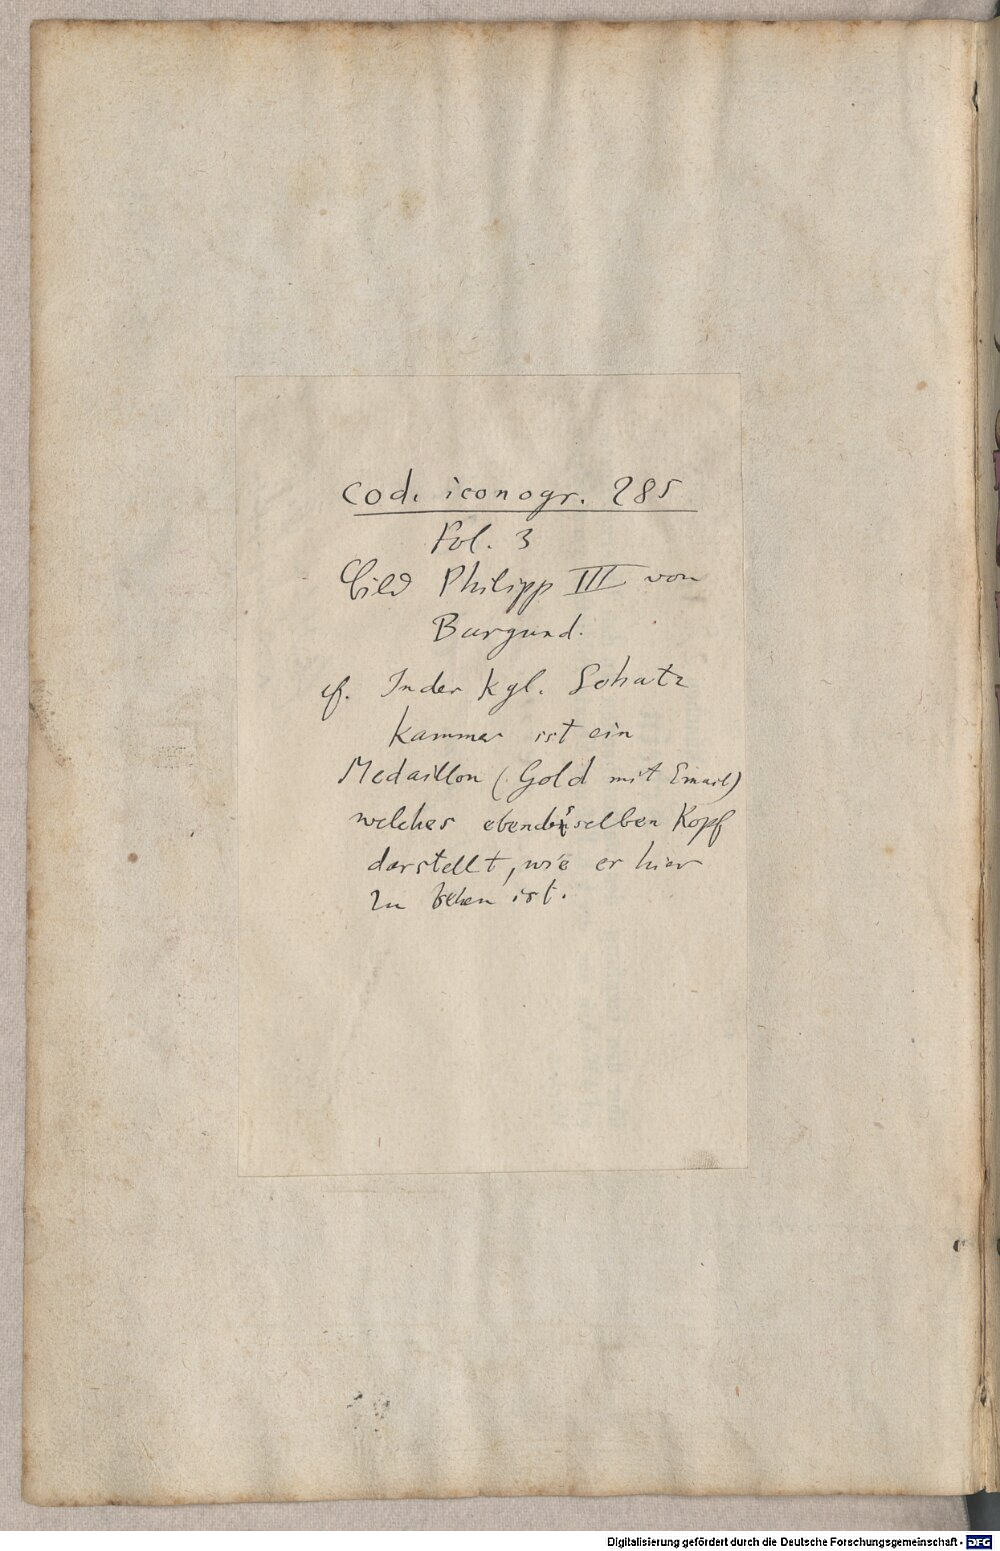 Cod. iconogr. 285
Fol. 3
Bild Philipp III von
Burgund.
cf. In der kgl. Schatz
kammer ist ein
Medaillon (Gold mit Email)
welches ebendenselben Kopf
darstellt, wie er hier
zu sehen ist.
Digitalisierung gefördert durch die Deutsche Forschungsgemeinschaft - DFG